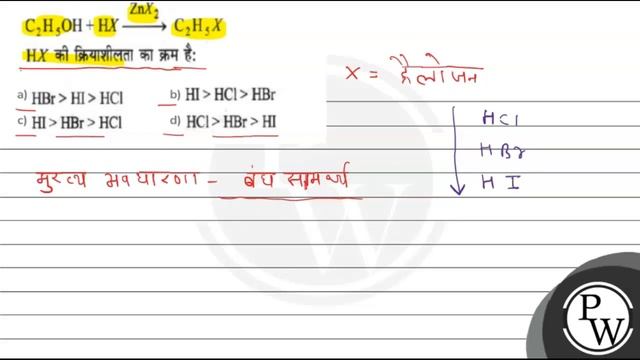 C₂H₅OH + HX —ZnX₂→ C₂H₅X
HX की क्रियाशीलता का क्रम है:
a) HBr > HI > HCl b) HI > HCl > HBr
c) HI > HBr > HCl d) HCl > HBr > HI
X = हैलोजन
HCl
HBr
HI
मुख्य अवधारणा - बंध सामर्थ्य
PW
PW